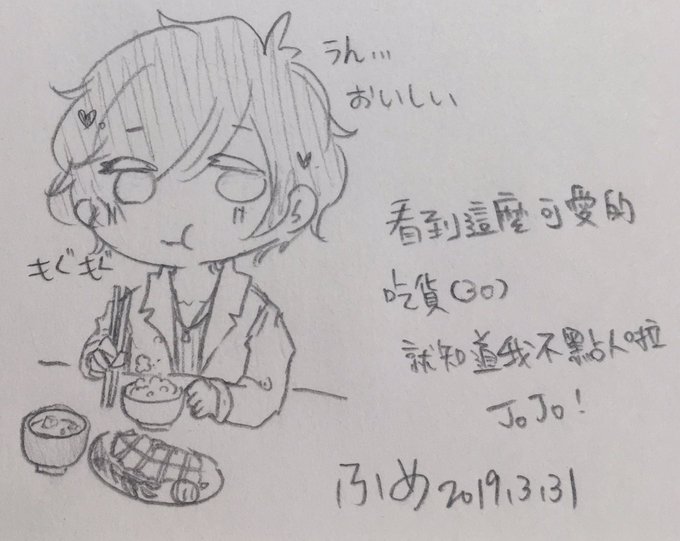 うん...
おいしい
もぐもぐ
看到這麼可愛的
吃貨(30)
就知道我不點人啦
JOJO!
ふめ 2019.3.31